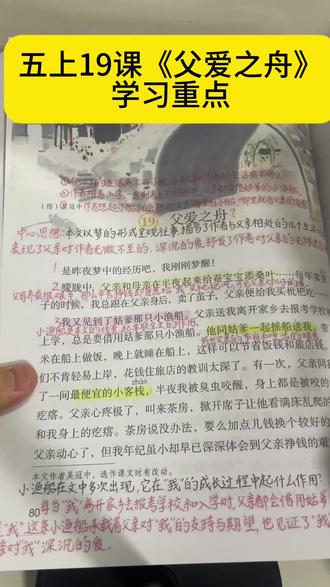 五上19课《父爱之舟》
学习重点
(图)吴冠中
19 父爱之舟
中心思想:本文以梦的形式呈现往事,描写了作者与父亲相处的几个生活
表现了父亲对作者无微不至的、深沉的爱,抒发了作者对父亲的无限
1 是昨夜梦中的经历吧,我刚刚梦醒!
2 朦胧中,父亲和母亲在半夜起来给蚕宝宝添桑叶……每年卖
子的时候,我总跟在父亲身后,卖了茧子,父亲便给我买枇杷吃……
3 我又见到了姑爹那只小渔船。父亲送我离开家乡去报考学校
上学,总是要借用姑爹那只小渔船。他同姑爹一起摇船送我。带
米在船上做饭,晚上就睡在船上,这样可以节省饭钱和旅店钱。
们不肯轻易上岸,花钱住旅店的教训太深了。有一次,父亲同我
zhàn
了一间最便宜的小客栈,半夜我被臭虫咬醒,身上都是被咬的
疙瘩。父亲心疼极了,叫来茶房,掀开席子让他看满床乱爬的
和我身上的疙瘩。茶房说没办法,要么加点儿钱换个较好的
父亲动心了,但我年纪虽小却早已深深体会到父亲挣钱的艰
本文作者吴冠中,选作课文时有改动。
小渔船在文中多次出现,它在"我"的成长过程中起什么作用?
80
每当"我"离开家乡去报考学校和入学时,父亲都会借用姑爹
"我",这条小渔船承载着父亲对"我"的支持与期望,也见证了"我
亲对"我"深沉的爱。